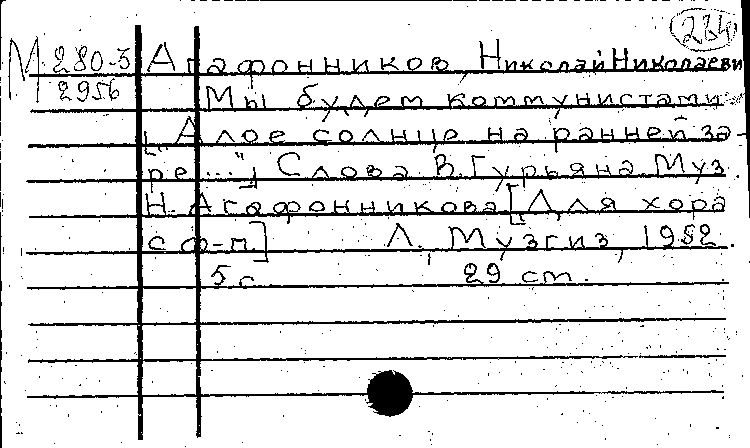 284
М 280-3 Агафонников, Николай Николаевич
2956 Мы будем коммунистами
["Алое солнце на ранней за-
ре..."] Слова В. Гурьяна Муз.
Н. Агафонникова [Для хора
с ф-п.] Л., Музгиз, 1952.
5 с 29 см.